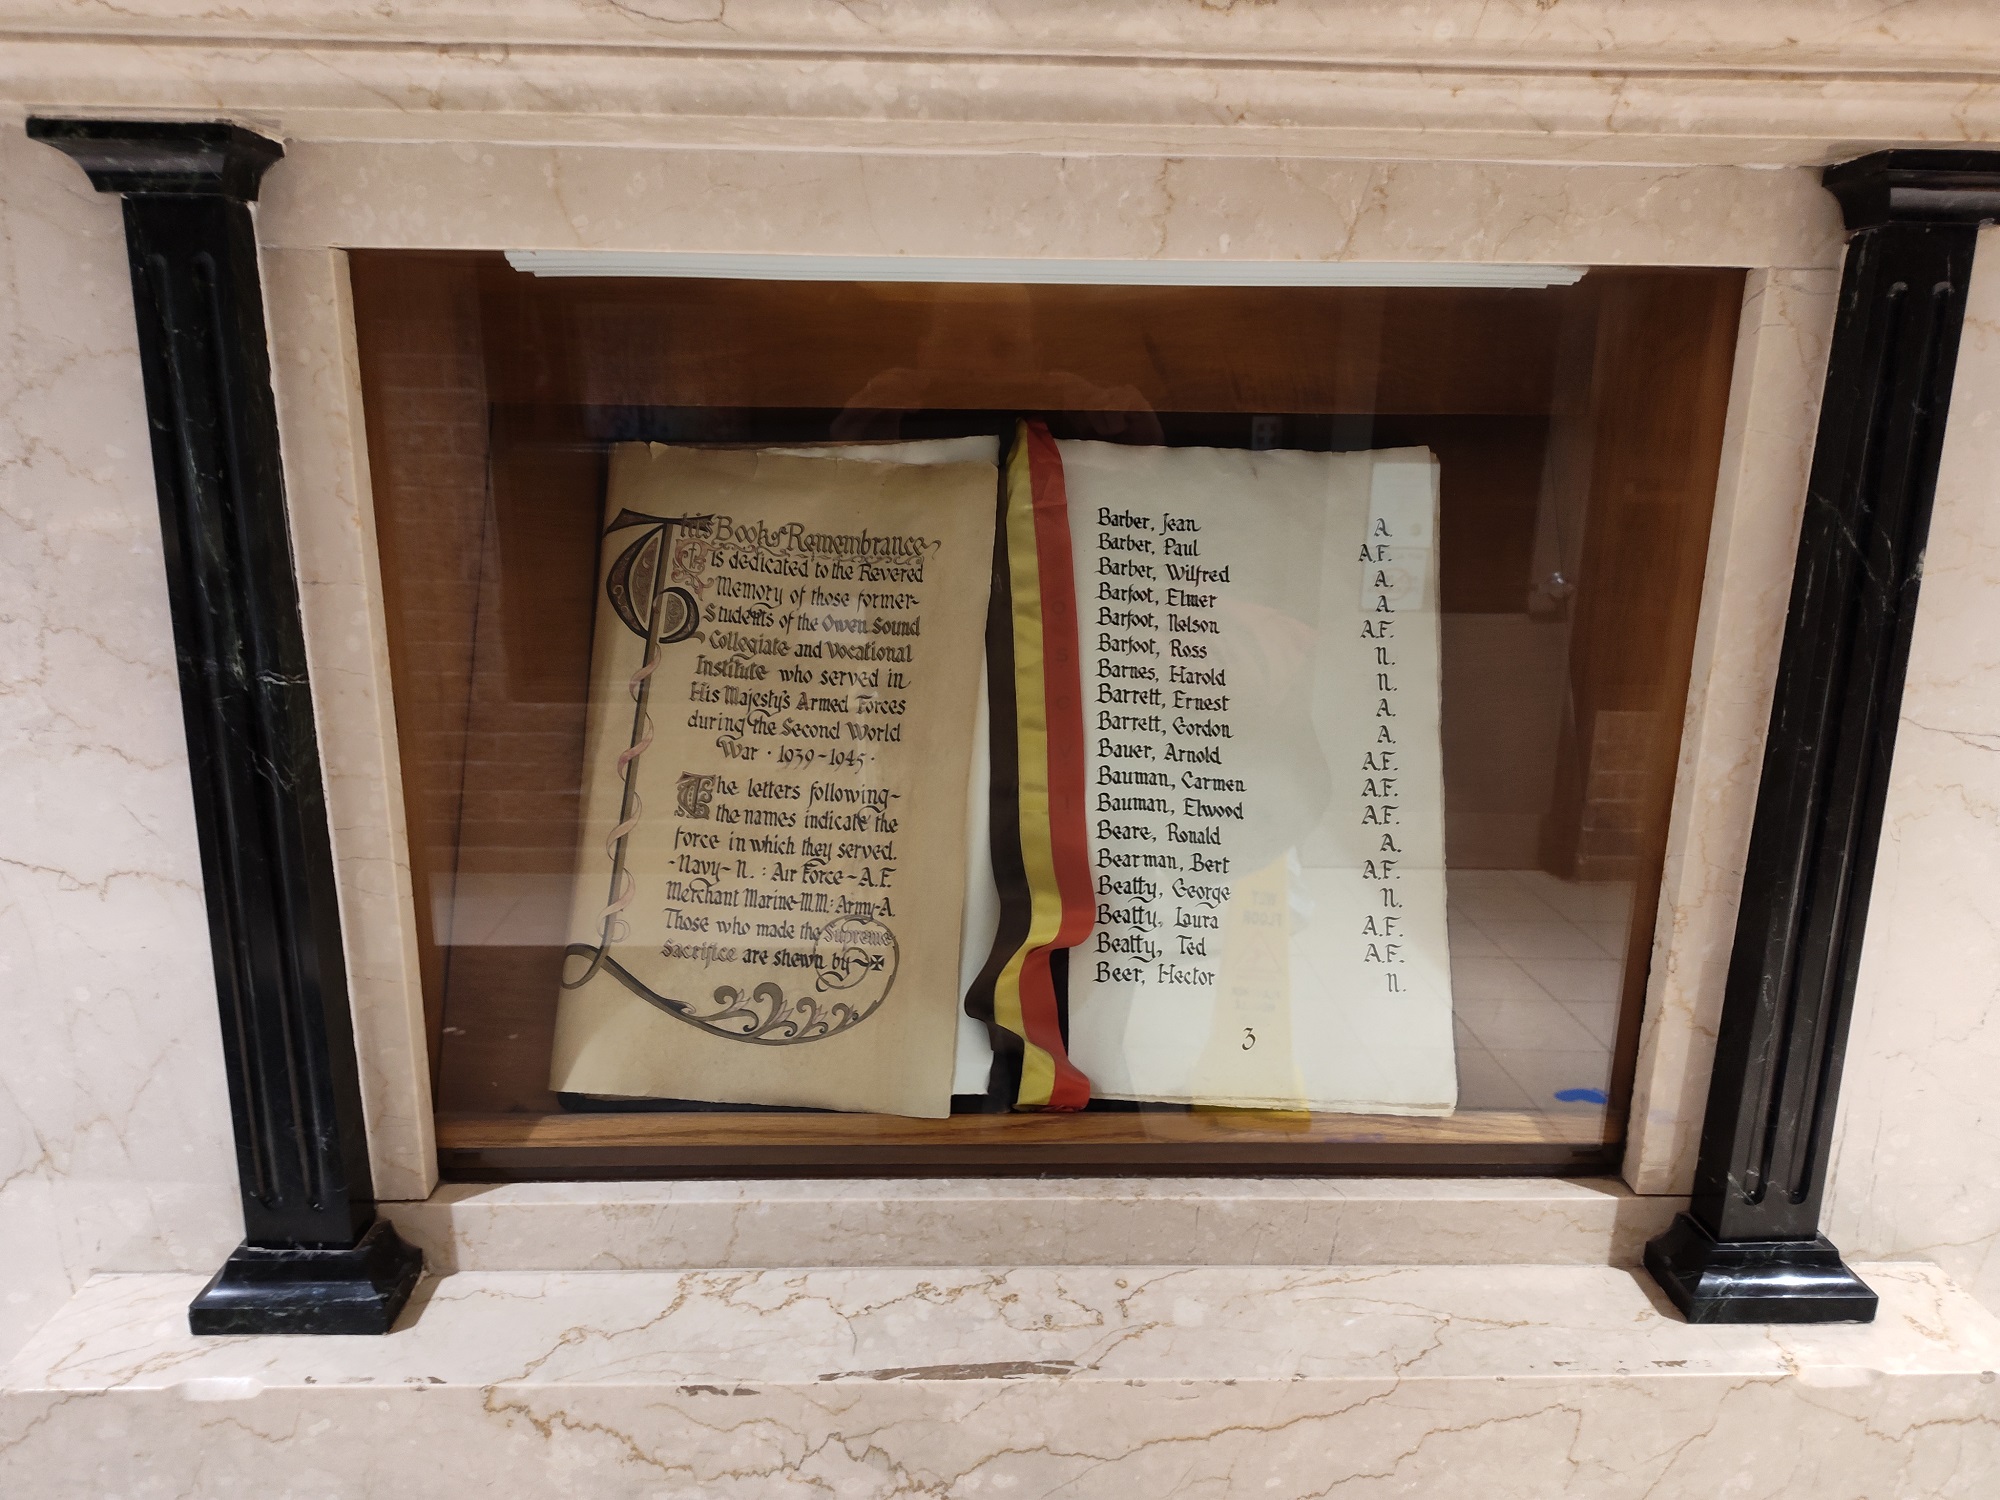 This Book of Remembrance
is dedicated to the Revered
Memory of those former
Students of the Owen Sound
Collegiate and Vocational
Institute who served in
His Majesty's Armed Forces
during the Second World
War · 1939-1945 ·
The letters following
the names indicate the
force in which they served.
-Navy-N. : Air Force-A.F.
Merchant Marine-M.M.: Army-A.
Those who made the Supreme
Sacrifice are shewn by ✠
Barber, Jean A.
Barber, Paul A.F.
Barber, Wilfred A.
Barfoot, Elmer A.
Barfoot, Nelson A.F.
Barfoot, Ross N.
Barnes, Harold N.
Barrett, Ernest A.
Barrett, Gordon A.
Bauer, Arnold A.F.
Bauman, Carmen A.F.
Bauman, Elwood A.F.
Beare, Ronald A.
Bearman, Bert A.F.
Beatty, George N.
Beatty, Laura A.F.
Beatty, Ted A.F.
Beer, Hector N.
3